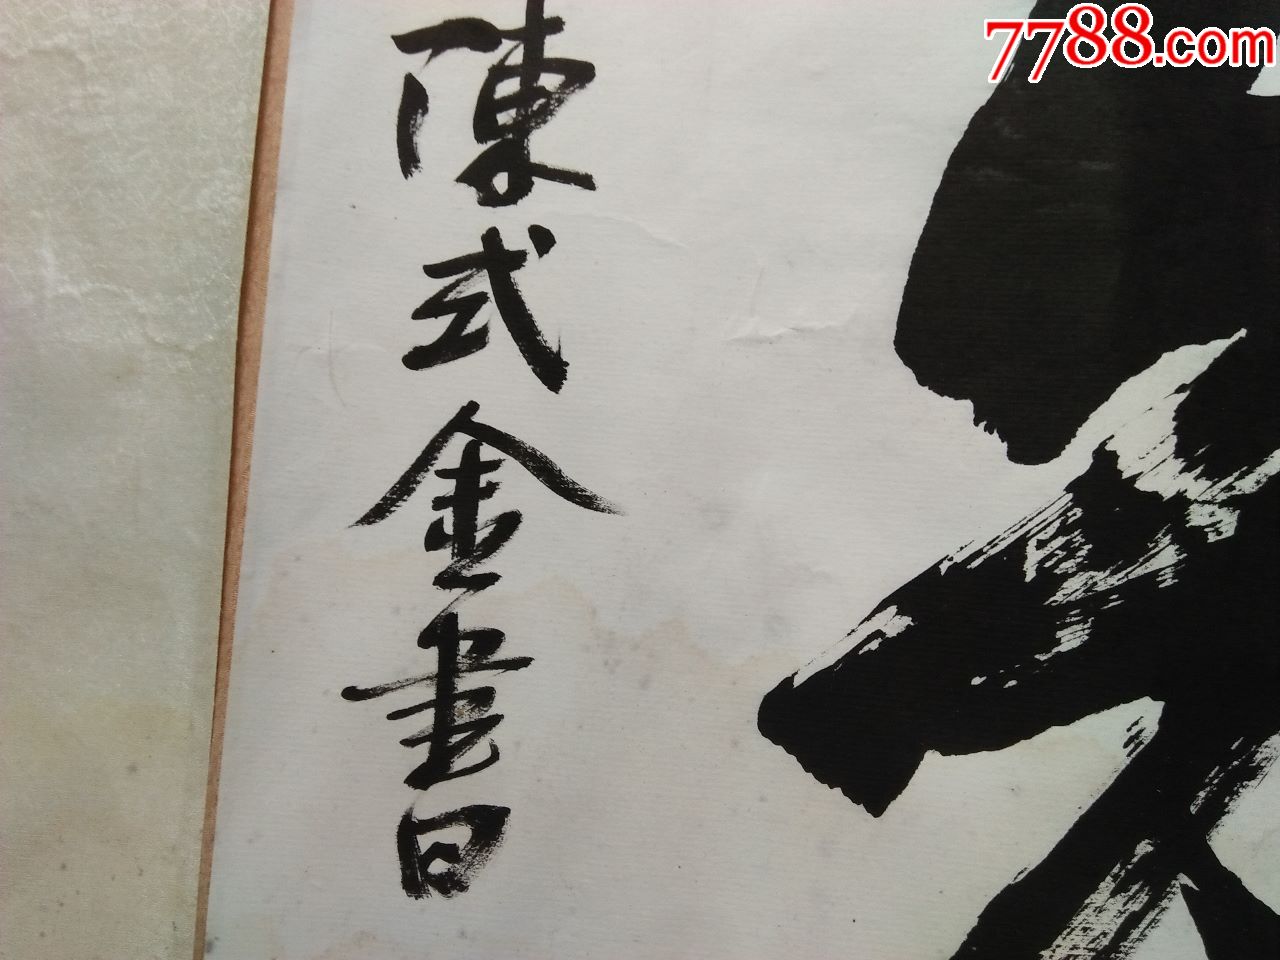 7788.com
陳式金書